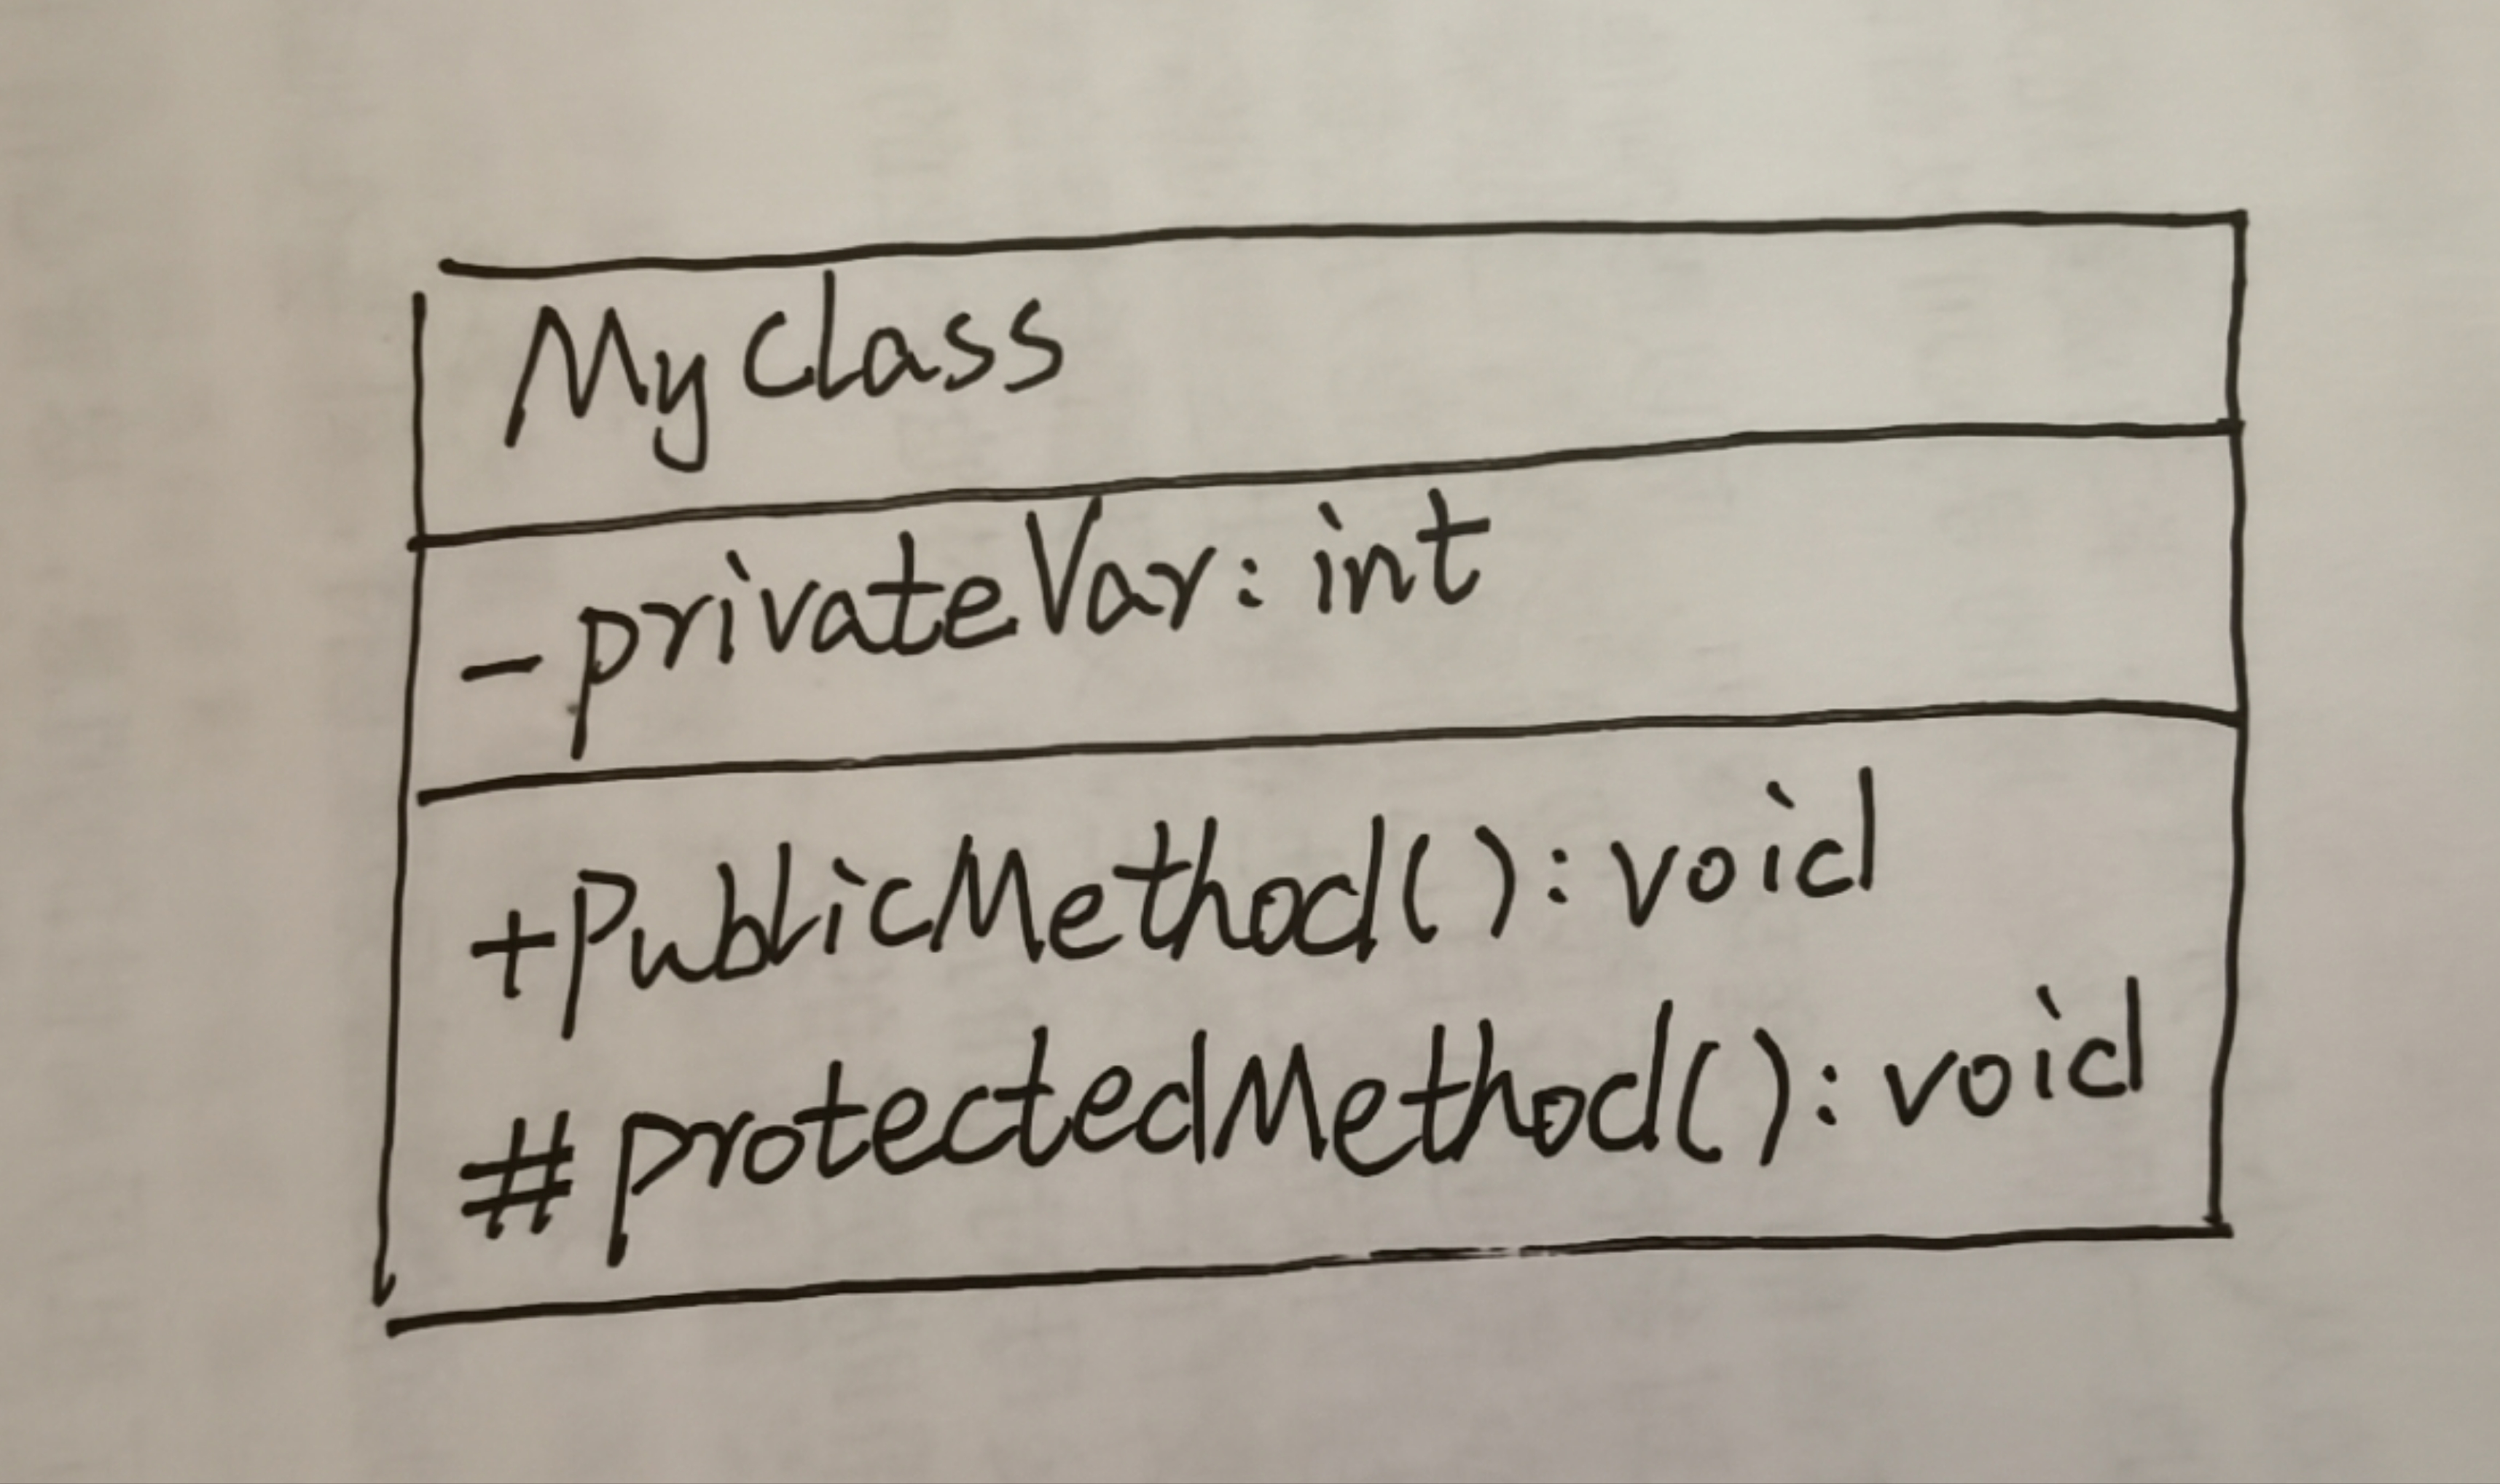 MyClass
- privateVar: int
+publicMethod(): void
#protectedMethod(): void